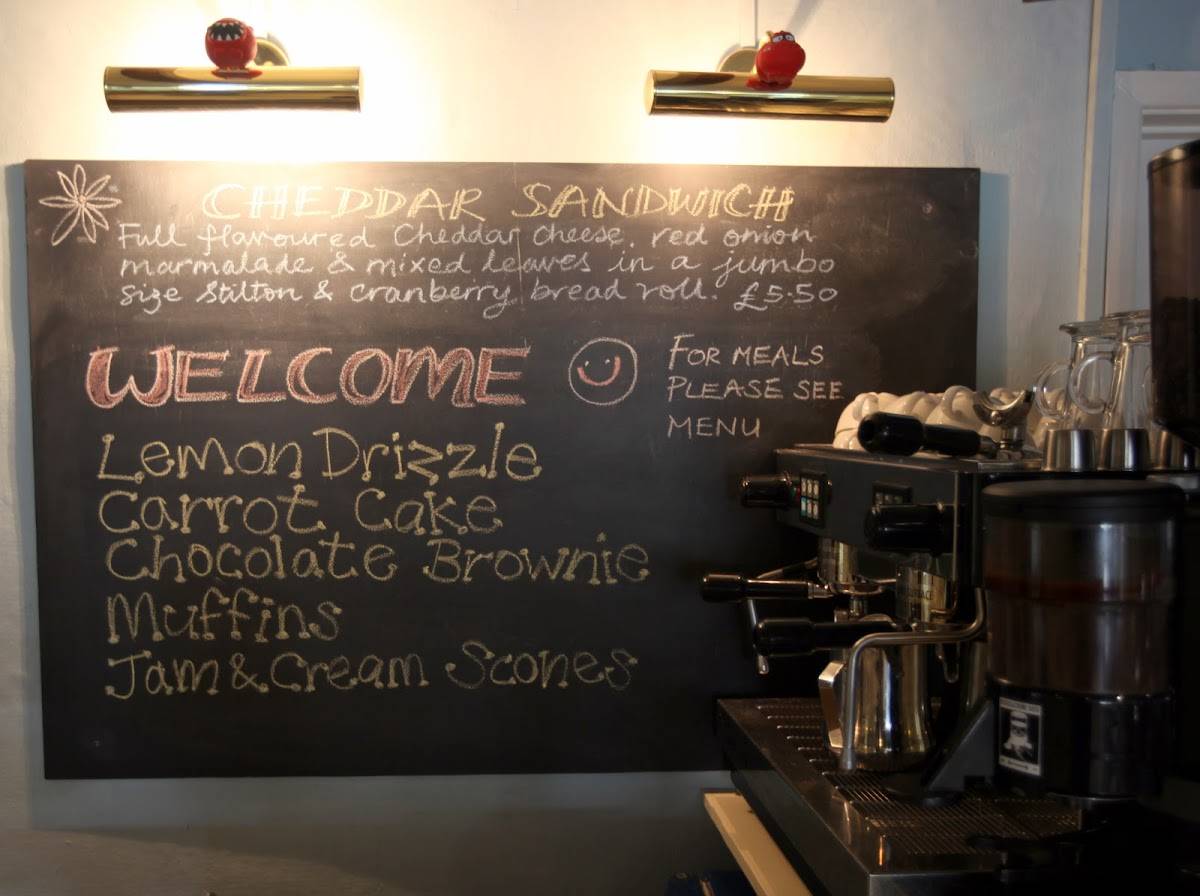 CHEDDAR SANDWICH
Full flavoured Cheddar cheese, red onion
marmalade & mixed leaves in a jumbo
size Stilton & cranberry bread roll. £5.50
WELCOME
FOR MEALS
PLEASE SEE
MENU
Lemon Drizzle
Carrot Cake
Chocolate Brownie
Muffins
Jam & Cream Scones